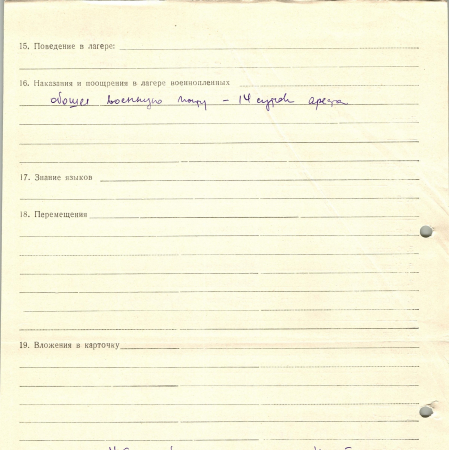 15. Поведение в лагере:
16. Наказания и поощрения в лагере военнопленных
военную – 14 суток ареста
17. Знание языков
18. Перемещения
19. Вложения в карточку